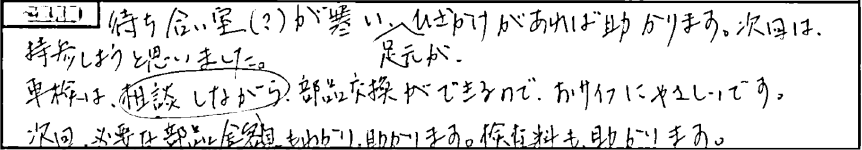 待ち合い室(?)が寒い、ひざかけがあれば助かります。次回は、
足元が、
持参しようと思いました。
車検は、相談しながら、部品交換ができるので、おサイフにやさしいです。
次回、必要な部品金額もわかり、助かります。検査料も、助かります。